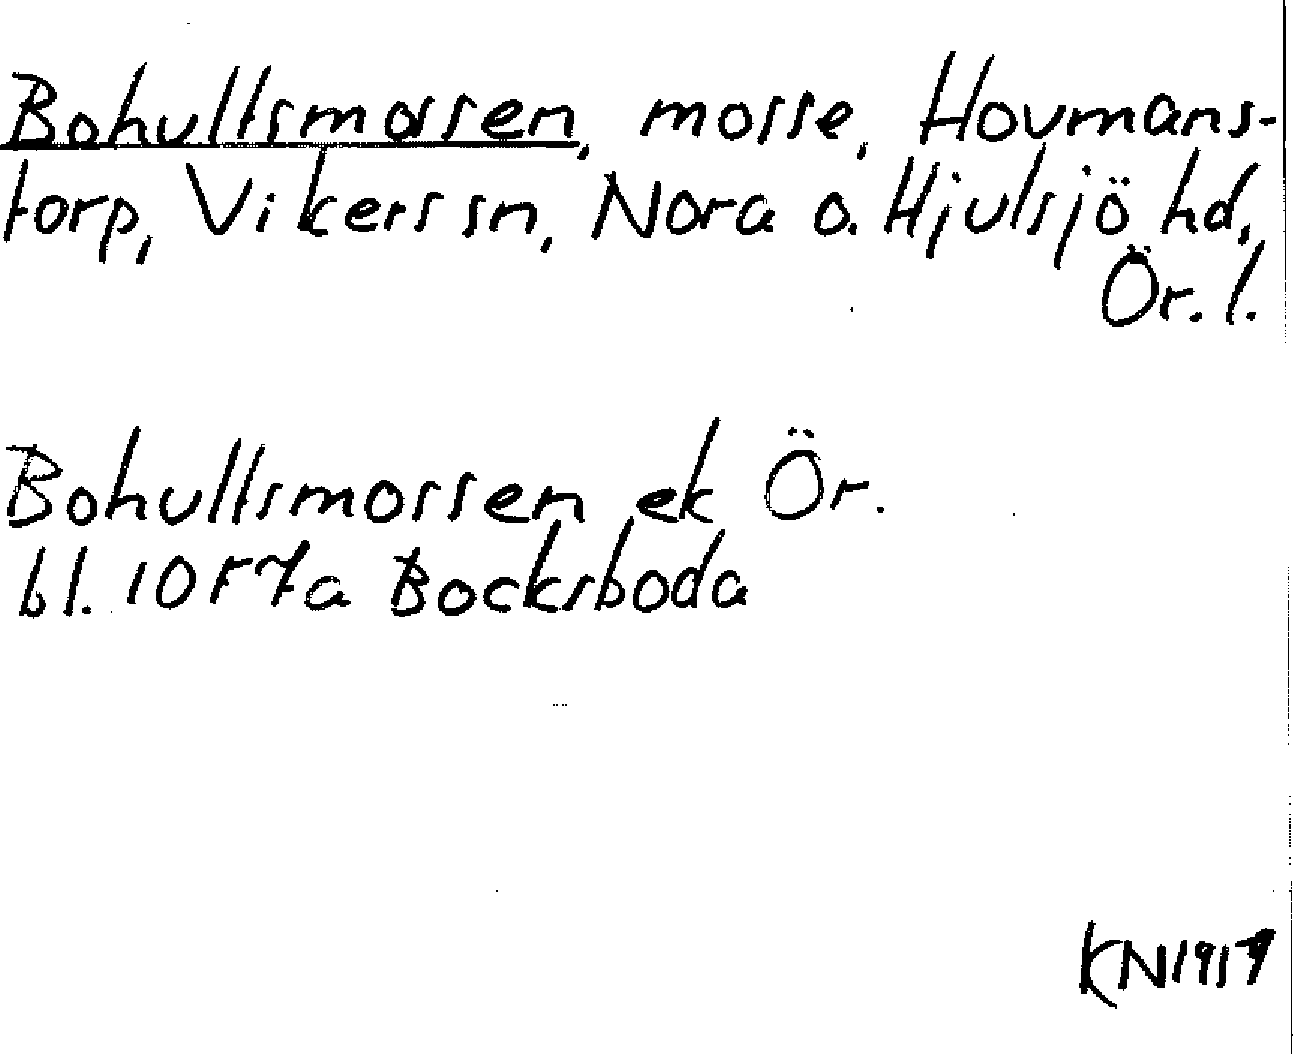 Bohultsmossen, mosse, Hovmans-
torp, Vikers sn, Nora o. Hjulsjö hd,
Ör. l.
Bohultsmossen ek Ör.
bl. 10F7a Bocksboda